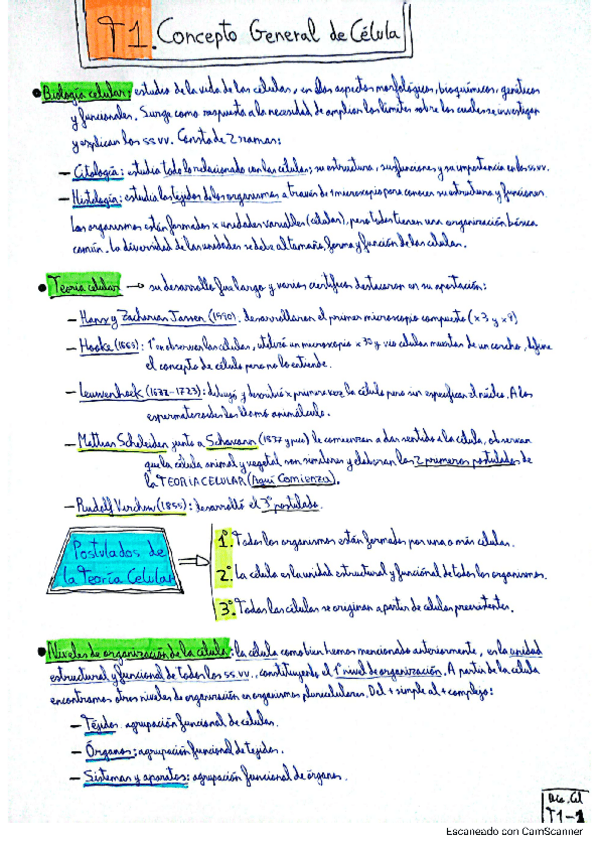 T1. Concepto General de Célula
Biología celular: estudio de la vida de las células, en los aspectos morfológicos, bioquímicos, genéticos
y funcionales. Surge como respuesta a la necesidad de ampliar los límites sobre los cuales se investigan
y explican los ss vv. Consta de 2 ramas:
- Citología: estudia todo lo relacionado con las células; su estructura, sus funciones y su importancia en los ss vv.
- Histología: estudia los tejidos de los organismos a través de 1 microscopio para conocer su estructura y funciones.
Los organismos están formados x unidades variables (células), pero todos tienen una organización básica
común. La diversidad de las unidades se debe al tamaño, forma y función de las células.
Teoría celular → su desarrollo fue largo y varios científicos destacaron en su aportación:
- Hans y Zacharian Jassen (1590). desarrollaron el primer microscopio compuesto (x3 y x9)
- Hooke (1665): 1º en observar las células, utilizó un microscopio x30 y vio células muertas de un corcho, define
el concepto de célula pero no lo entiende.
- Leuwenhoek (1632-1723): dibujó y describió x primera vez la célula pero sin especificar el núcleo. A los
espermatozoides los llamó animálculo.
- Mattias Scheleiden junto a Schwann (1837 y pico) le comienzan a dar sentido a la célula, observan
que la célula animal y vegetal son similares y elaboran los 2 primeros postulados de
la TEORIA CELULAR (Aquí Comienza).
- Rudolf Virchow (1855): desarrolló el 3º postulado.
Postulados de
la Teoría Celular
1º. Todos los organismos están formados por una o más células.
2º. La célula es la unidad estructural y funcional de todos los organismos.
3º. Todas las células se originan a partir de células preexistentes.
Niveles de organización de la célula: la célula como bien hemos mencionado anteriormente, es la unidad
estructural y funcional de todos los ss vv., constituyendo el 1º nivel de organización. A partir de la célula
encontramos otros niveles de organización en organismos pluricelulares. Del + simple al + complejo:
- Tejidos. agrupación funcional de células.
- Órganos: agrupación funcional de tejidos.
- Sistemas y aparatos: agrupación funcional de órganos.
T1-1
Escaneado con CamScanner